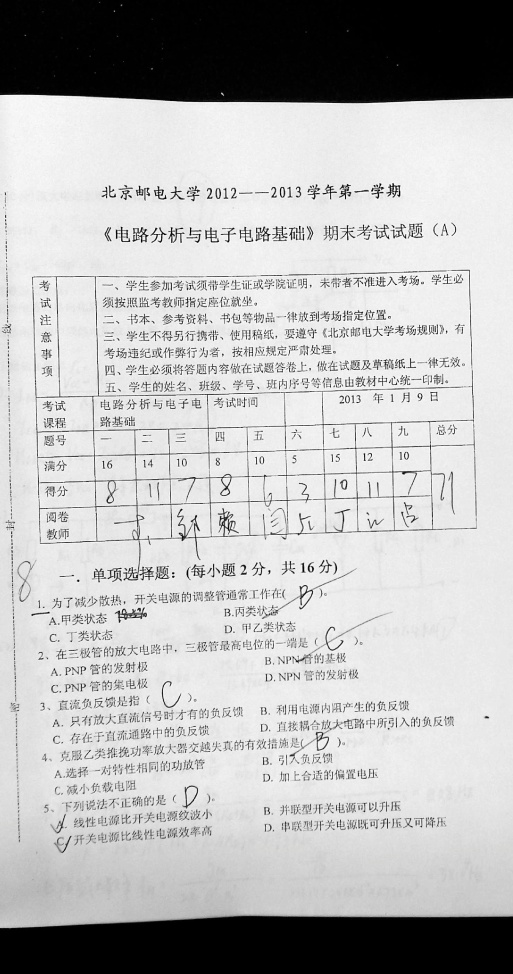 北京邮电大学 2012——2013 学年第一学期
《电路分析与电子电路基础》期末考试试题（A）
考试注意事项
一、学生参加考试须带学生证或学院证明，未带者不准进入考场。学生必
须按照监考教师指定座位就坐。
二、书本、参考资料、书包等物品一律放到考场指定位置。
三、学生不得另行携带、使用稿纸，要遵守《北京邮电大学考场规则》，有
考场违纪或作弊行为者，按相应规定严肃处理。
四、学生必须将答题内容做在试题答卷上，做在试题及草稿纸上一律无效。
五、学生的姓名、班级、学号、班内序号等信息由教材中心统一印制。
考试课程 电路分析与电子电路基础 考试时间 2013 年 1 月 9 日
题号 一 二 三 四 五 六 七 八 九 总分
满分 16 14 10 8 10 5 15 12 10
得分 8 11 7 8 6 3 10 11 7 71
阅卷教师
8
一．单项选择题：(每小题 2 分，共 16 分)
1. 为了减少散热，开关电源的调整管通常工作在( B )。
A.甲类状态 B.丙类状态
C. 丁类状态 D. 甲乙类状态
2、在三极管的放大电路中，三极管最高电位的一端是（ C ）。
A. PNP 管的发射极 B. NPN 管的基极
C. PNP 管的集电极 D. NPN 管的发射极
3、直流负反馈是指（ C ）。
A. 只有放大直流信号时才有的负反馈 B. 利用电源内阻产生的负反馈
C. 存在于直流通路中的负反馈 D. 直接耦合放大电路中所引入的负反馈
4、克服乙类推挽功率放大器交越失真的有效措施是( B )。
A.选择一对特性相同的功放管 B. 引入负反馈
C. 减小负载电阻 D. 加上合适的偏置电压
5、下列说法不正确的是（ D ）。
A. 线性电源比开关电源纹波小 B. 并联型开关电源可以升压
C. 开关电源比线性电源效率高 D. 串联型开关电源既可升压又可降压